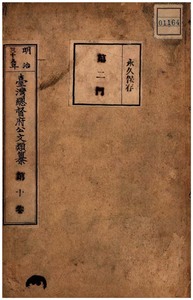 01164
永久保存
第二門
明治
臺灣總督府公文類纂
第十卷